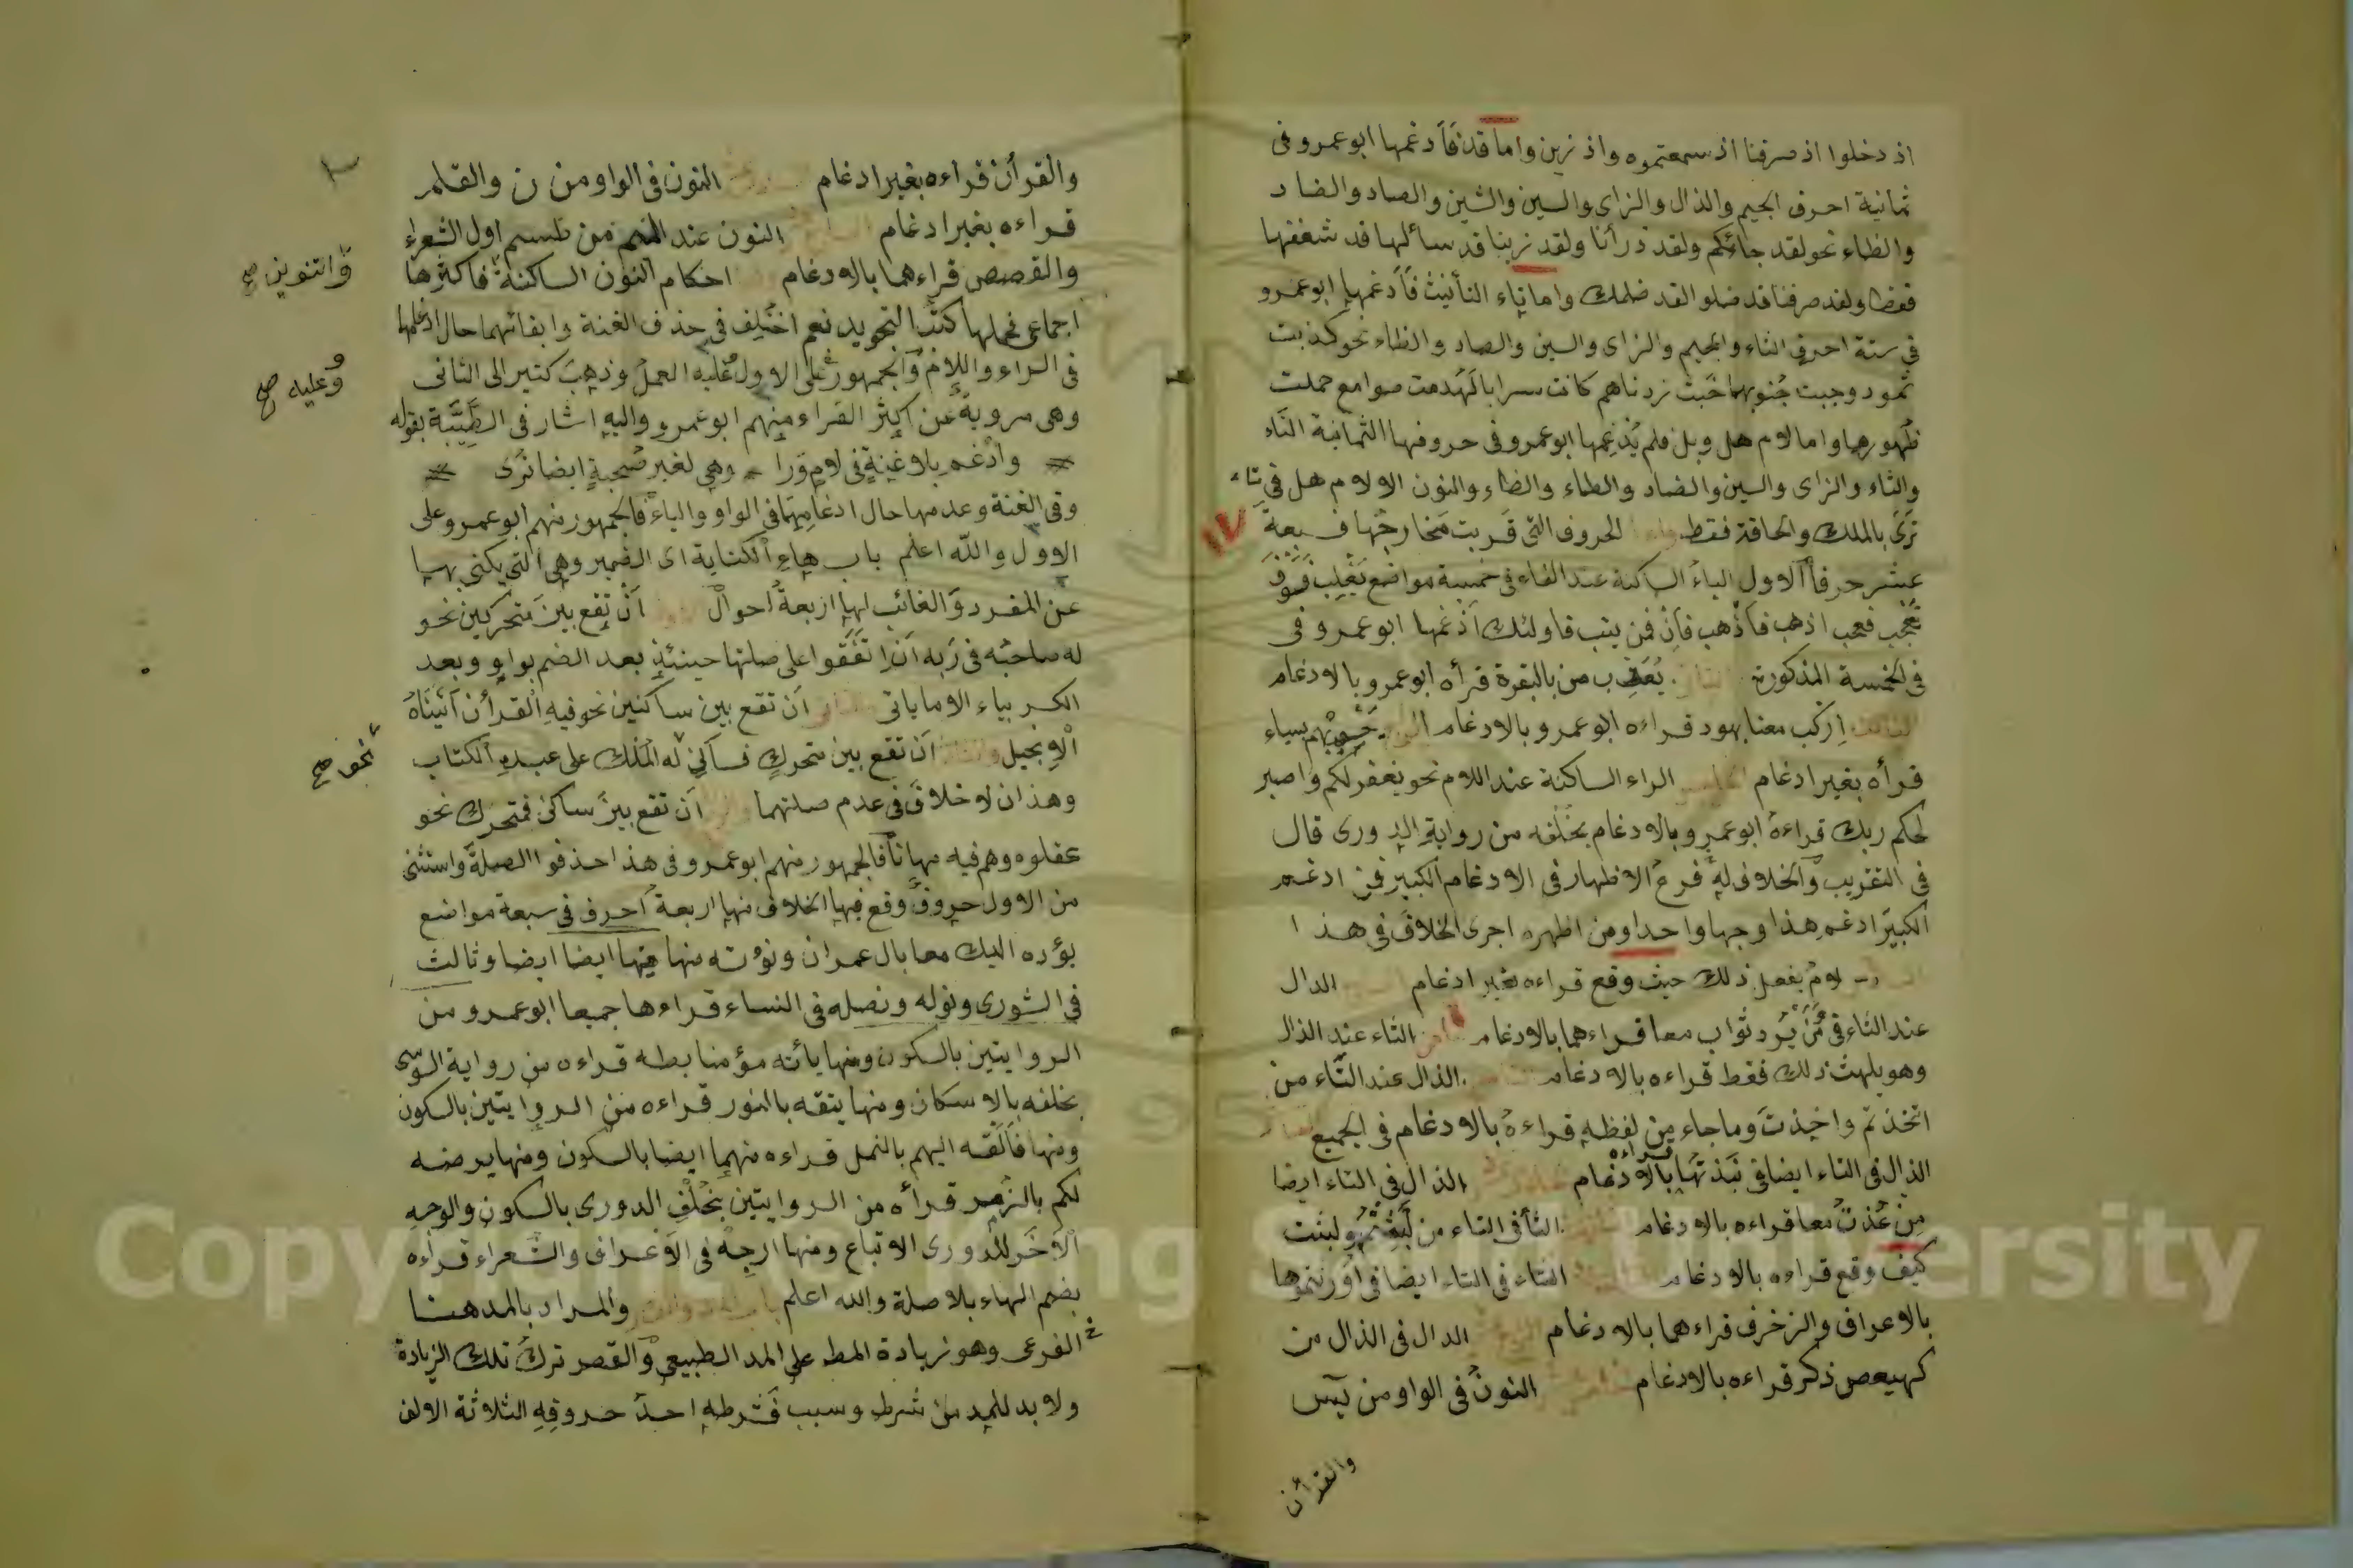 اذ دخلوا اذ صرفنا اذ سمعتموه واذ زين واما قد فَأَدغمها ابوعمرو فى
ثمانية احرف الجيم والذال والزاى والسين والشين والصاد والضاد
والظاء نحو لقد جائكم ولقد ذرأنا ولقد زينا قد سائلها قد شغفها
ولقد صرفنا قد ضلوا لقد ظلمك واما تاء التأنيث فَأَدغمها ابوعمرو
فى ستة احرف الثاء والجيم والزاى والسين والصاد والظاء نحو كذبت
ثمود وجبت جُنوبها خبت زدناهم كانت سرابا لَهُدمت صوامع حملت
ظُهورها واما لام هل وبل فلم يُدغمها ابوعمرو فى حروفها الثمانية التاء
والثاء والزاى والسين والضاد والطاء والظاء والنون الا لام هل فى تاء
تَرَى بالملك والحاقة فقط الحروف التى قَربت مَخارجُها فسبعةَ
١٧
عشر حرفاً الاول الباءُ الساكنة عند الفاء فى خمسة مواضع يَغْلِب فَسَوْفَ
تَعْجَب فعجب اذهب فَاذْهب فَاِنّ فمن يتب فاولئك اَدْغمها ابوعمرو فى
فى الخمسة المذكورة يُعَذِّب من بالبقرة قرأه ابوعمرو بالادغام
الثالث اِرْكب معنا بهود قراءه ابوعمرو بالادغام نَخْسِف بهم بسباء
قرأه بغير ادغام الراء الساكنة عند اللام نحو يغفر لكم واصبر
لحكم ربك قراءهُ ابوعمرو بالادغام بخُلْفه من رواية الدورى قال
فى التقريب والخلاف له فرعُ الاظهار فى الادغام الكبير فمن ادغم
الكبيرَ ادغم هذا وجها واحدا ومن اظهره اجرى الخلافَ فى هذا
لامُ يفعل ذلك حيث وقع قراءه بغير ادغام الدال
عند الثاء فى مَنْ يُرِد ثواب معا قراءهما بالادغام الثاء عند الذال
وهو يلهث ذلك فقط قراءه بالادغام الذال عند التّاء من
اتخذتم واخذتَ وما جاء من لفظه قراءهُ بالادغام فى الجميع
الذال فى التاء ايضا فى نَبَذْتُهَا قراءه بالادغام الذال فى التاء ايضا
مِن عُذْتُ معا قراءه بالادغام الثأ فى التاء من لَبِثْتُمْ ولبثت
كيف وقع قراءه بالادغام الثاء فى التاء ايضا فى اورثتموها
بالاعراف والزخرف قراءهما بالادغام الدال فى الذال من
كهيعص ذكر قراءه بالادغام النونُ فى الواو من يٓس
والقرأن
والقرأن قراءه بغير ادغام النون فى الواو من ن والقلم
قراءه بغير ادغام النون عند الميم من طسم اول الشعراء
والقصص قراءهما بالادغام احكام النون الساكنة فاكثرها
والتنوين صح
اجماعى فحملها كتبُ التجويد نعم اختُلِف فى حذف الغنة وابقائهما حال ادغامها
فى الراء واللام والجمهور على الاول عليه العملُ وذهب كثير الى الثانى
وعليه صح
وهى مروية عن اكثر القراء منهم ابوعمرو واليه اشار فى الطَّيِّبَة بقوله
وادْغم بلا غنةٍ فى لامٍ ورا وهى لغير صُحبةٍ ايضا تُرَى
وفى الغنة وعدمها حال ادغامِهِمَا فى الواو والياء فالجمهور منهم ابوعمرو على
الاول والله اعلم باب هاءِ الكناية اى الضمير وهى التى يكنى بها
عن المفرد والغائب لها اربعةُ احوال اَنْ تقع بين متحركين نحو
له صاحبُه فى رَبه اَن اتفقوا على صلتها حينئذٍ بعد الضم بواو وبعد
الكسر بياء الا ما ياتى اَن تقع بين ساكنين نحو فيه القرأن آتيناهُ
الانجيل اَن تقع بين متحركٍ فساكن لَه الملك على عبدهِ الكتاب
نحو صح
وهذان لا خلافَ فى عدم صلتهما اَن تقع بين ساكن فمتحرك نحو
عقلوه وهم فيه مهاناً فالجمهور منهم ابوعمرو فى هذا حذفوا الصلةَ واستثنى
من الاول حروفٌ وقع فيها الخلاف منها اربعةُ احرف فى سبعة مواضع
يؤده اليك معا بال عمران ونؤته منها منها ايضا ايضا وثالث
فى الشورى ونوله ونصله فى النساء قراءها جميعا ابوعمرو من
الروايتين بالسكون ومنها يأته مؤمنا بطه قراءه من رواية السوسى
بخلفه بالاسكان ومنها يتقه بالنور قراءه من الروايتين بالسكون
ومنها فَاَلْقه اليهم بالنمل قراءه منهما ايضا بالسكون ومنها يرضه
لكم بالزُمر قرأه من الروايتين بخُلْفِ الدورى بالسكون والوجهِ
الآخَر للدورى الاتباع ومنها ارجهْ فى الاعراف والشعراء قراءه
بضم الهاء بلا صلة والله اعلم والمراد بالمد هنا
الفرعى وهو زيادة المط على المد الطبيعى والقصر تركُ تلك الزيادة
ولا بد للمد من شرط وسبب فَشرطه احدُ حروفِهِ الثلاثة الالف